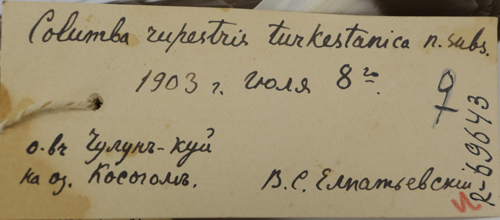 Columba rupestris turkestanica n. subs.
1903 г. Iюля 8го.
♀
R-69643
о-въ Чулунъ-куй
на оз. Косоголъ.
В. С. Елпатьевскiй